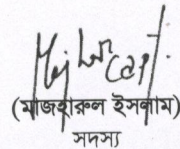 (মাজহারুল ইসলাম)
সদস্য